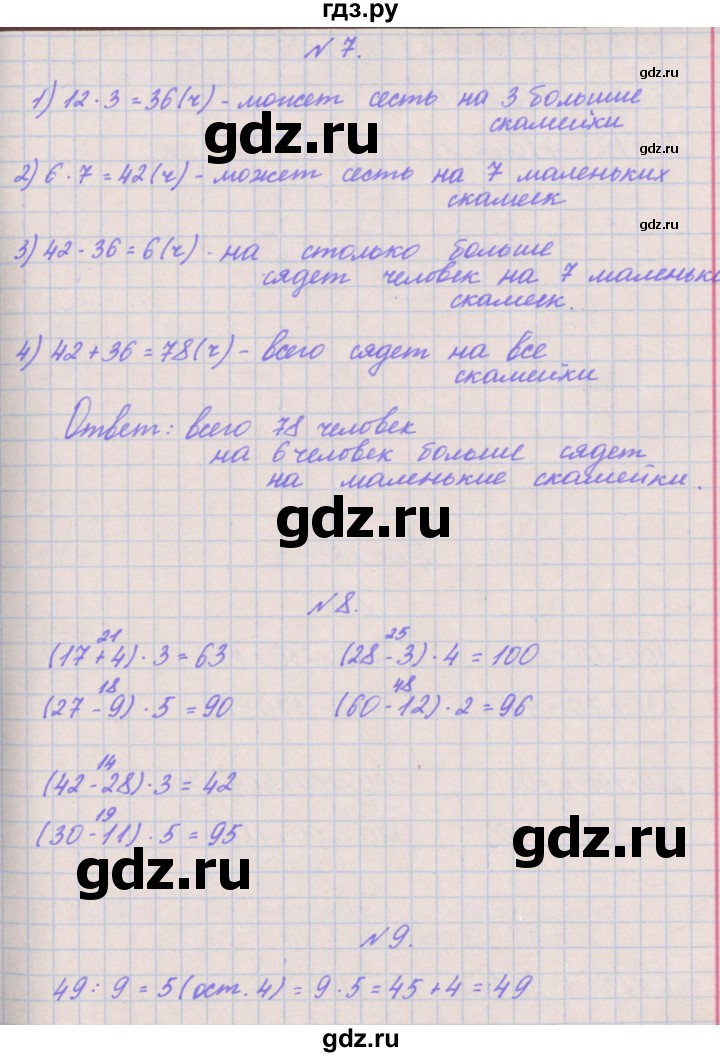 гдз.ру
N 7.
gdz.ru
1) 12 · 3 = 36 (ч) - может сесть на 3 большие
скамейки
gdz.ru
gdz.ru
2) 6 · 7 = 42 (ч) - может сесть на 7 маленьких
скамеек
gdz.ru
3) 42 - 36 = 6 (ч) - на столько больше
сядет человек на 7 маленьк
скамеек.
4) 42 + 36 = 78 (ч) - всего сядет на все
скамейки
gdz.ru
Ответ: всего 78 человек
на 6 человек больше сядет
на маленькие скамейки.
gdz.ru
N 8.
21
(17 + 4) · 3 = 63
25
(28 - 3) · 4 = 100
18
(27 - 9) · 5 = 90
48
(60 - 12) · 2 = 96
14
(42 - 28) · 3 = 42
19
(30 - 11) · 5 = 95
gdz.ru
gdz.ru
N 9.
gdz.ru
49 : 9 = 5 (ост. 4) = 9 · 5 = 45 + 4 = 49
gdz.ru
gdz.ru